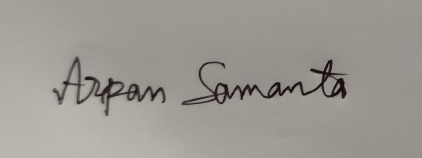 Arpan Samanta